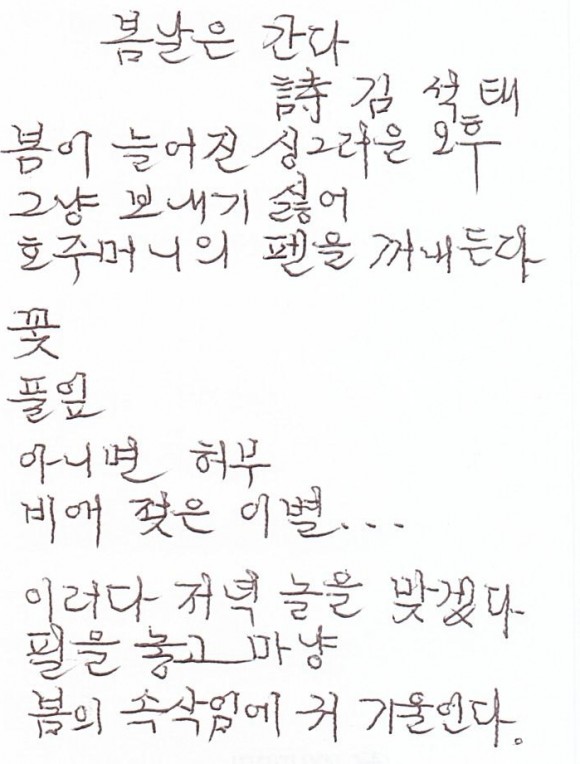 봄날은 간다
詩 김석태
봄이 늘어진 싱그러운 오후
그냥 보내기 싫어
호주머니의 펜을 꺼내든다
꽃
풀잎
아니면 허무
비애 젖은 이별...
이러다 저녁 놀을 맞겠다
펜을 놓고 마냥
봄의 속삭임에 귀 기울인다.